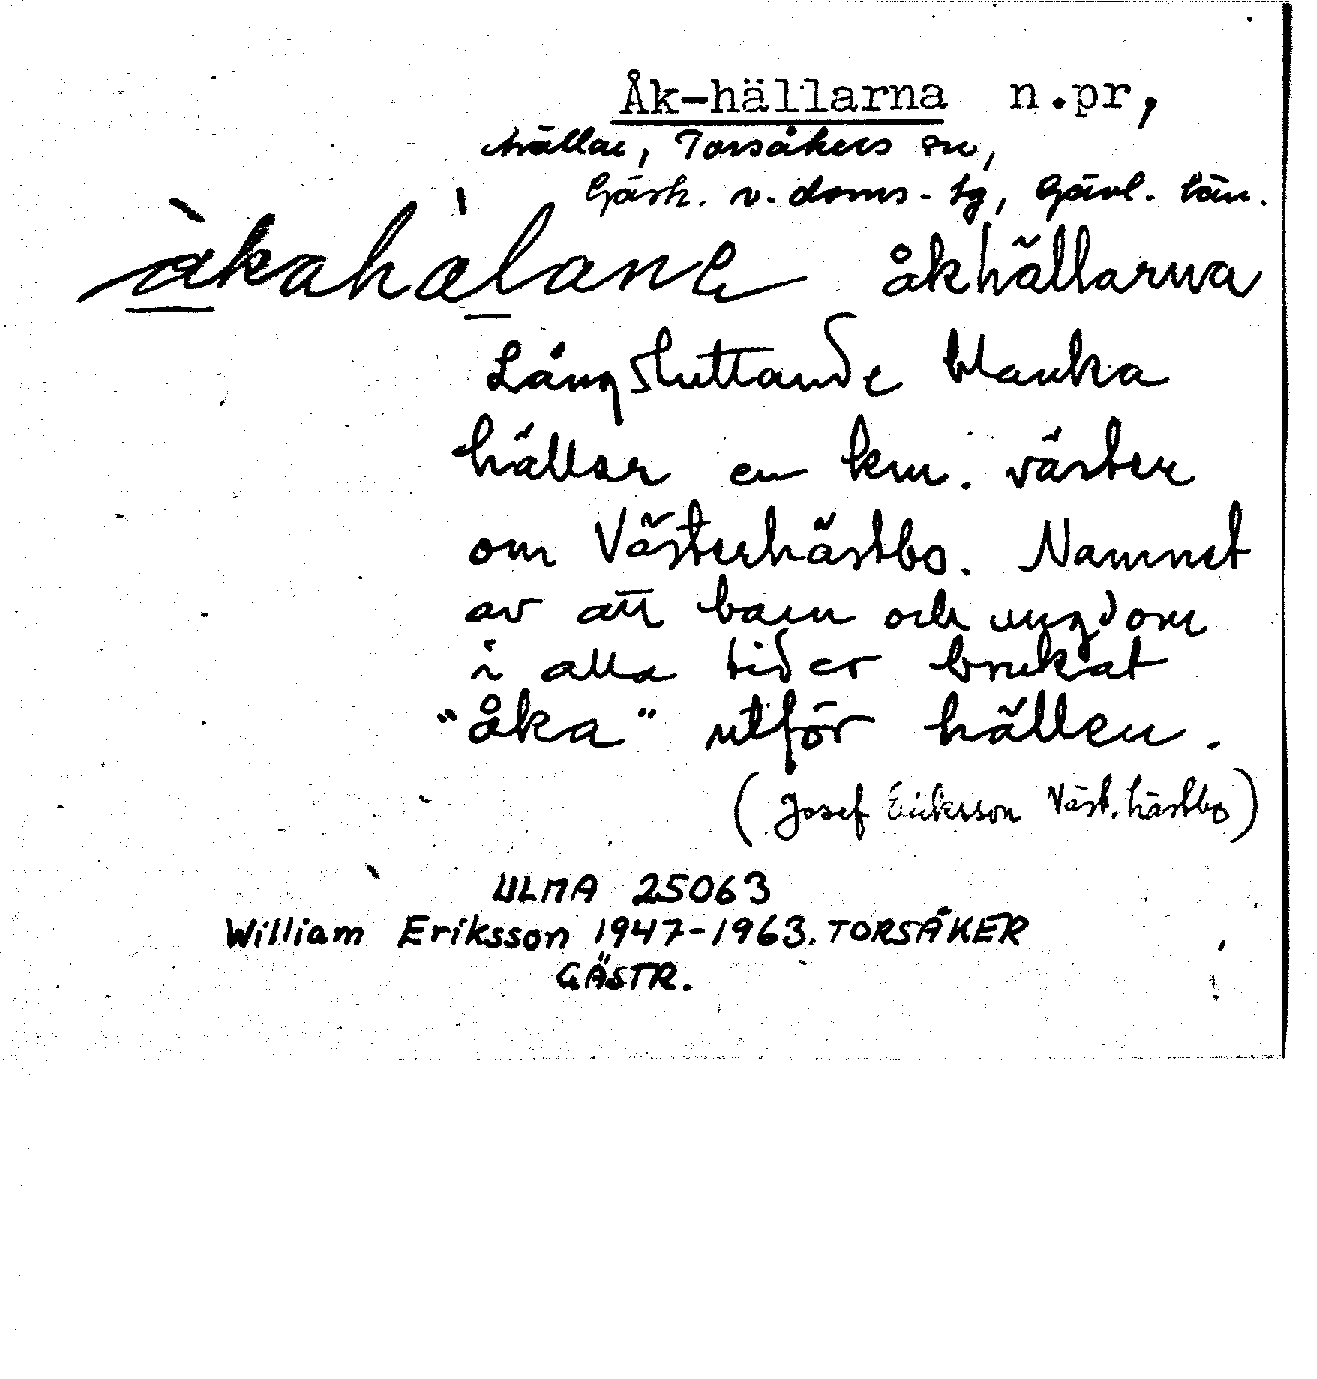 Åk-hällarna n.pr,
hällar, Torsåkers sn,
Gästr. v. doms. tg, Gävl. län.
åkahälane åkhällarna
Långsluttande blanka
hällar en km. väster
om Västerhästbo. Namnet
av att barn och ungdom
i alla tider brukat
"åka" utför hällen.
(Josef Eriksson Väst. hästbo)
ULMA 25063
William Eriksson 1947-1963. TORSÅKER
GÄSTR.